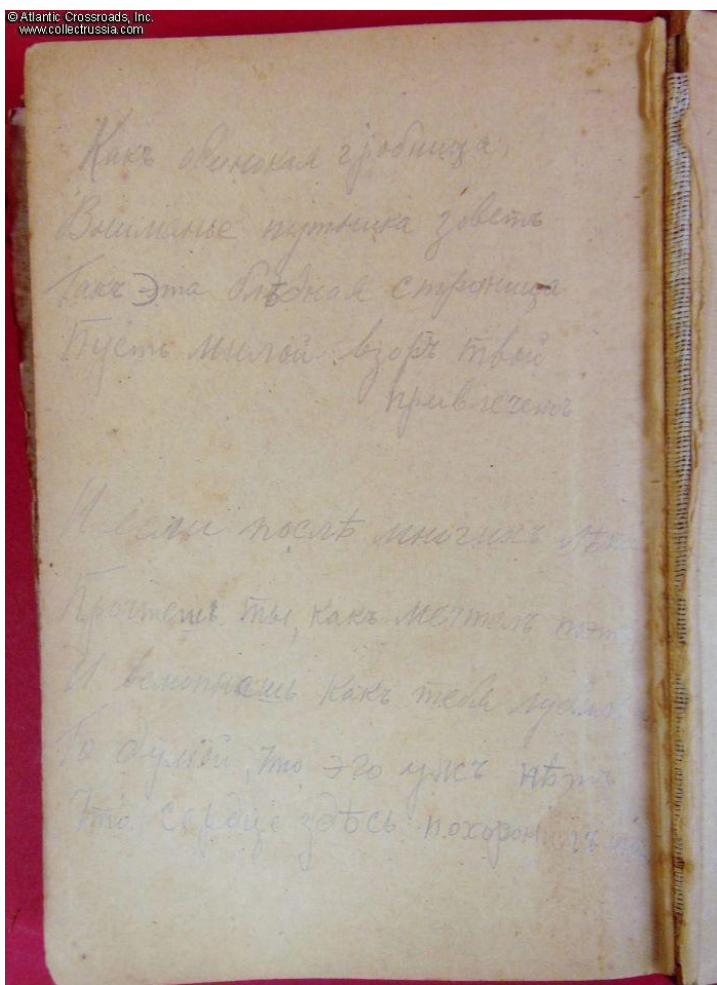 © Atlantic Crossroads, Inc.
www.collectrussia.com
Какъ одинокая гробница,
Вниманье путника зоветъ
Такъ эта блѣдная страница
Пусть милой взоръ твой
привлечетъ
И если послѣ многихъ лѣтъ
Прочтешь ты, какъ мечталъ поэтъ
И вспомнишь какъ тебя
То думай, что его ужъ нѣтъ
Что сердце здѣсь похоронилъ